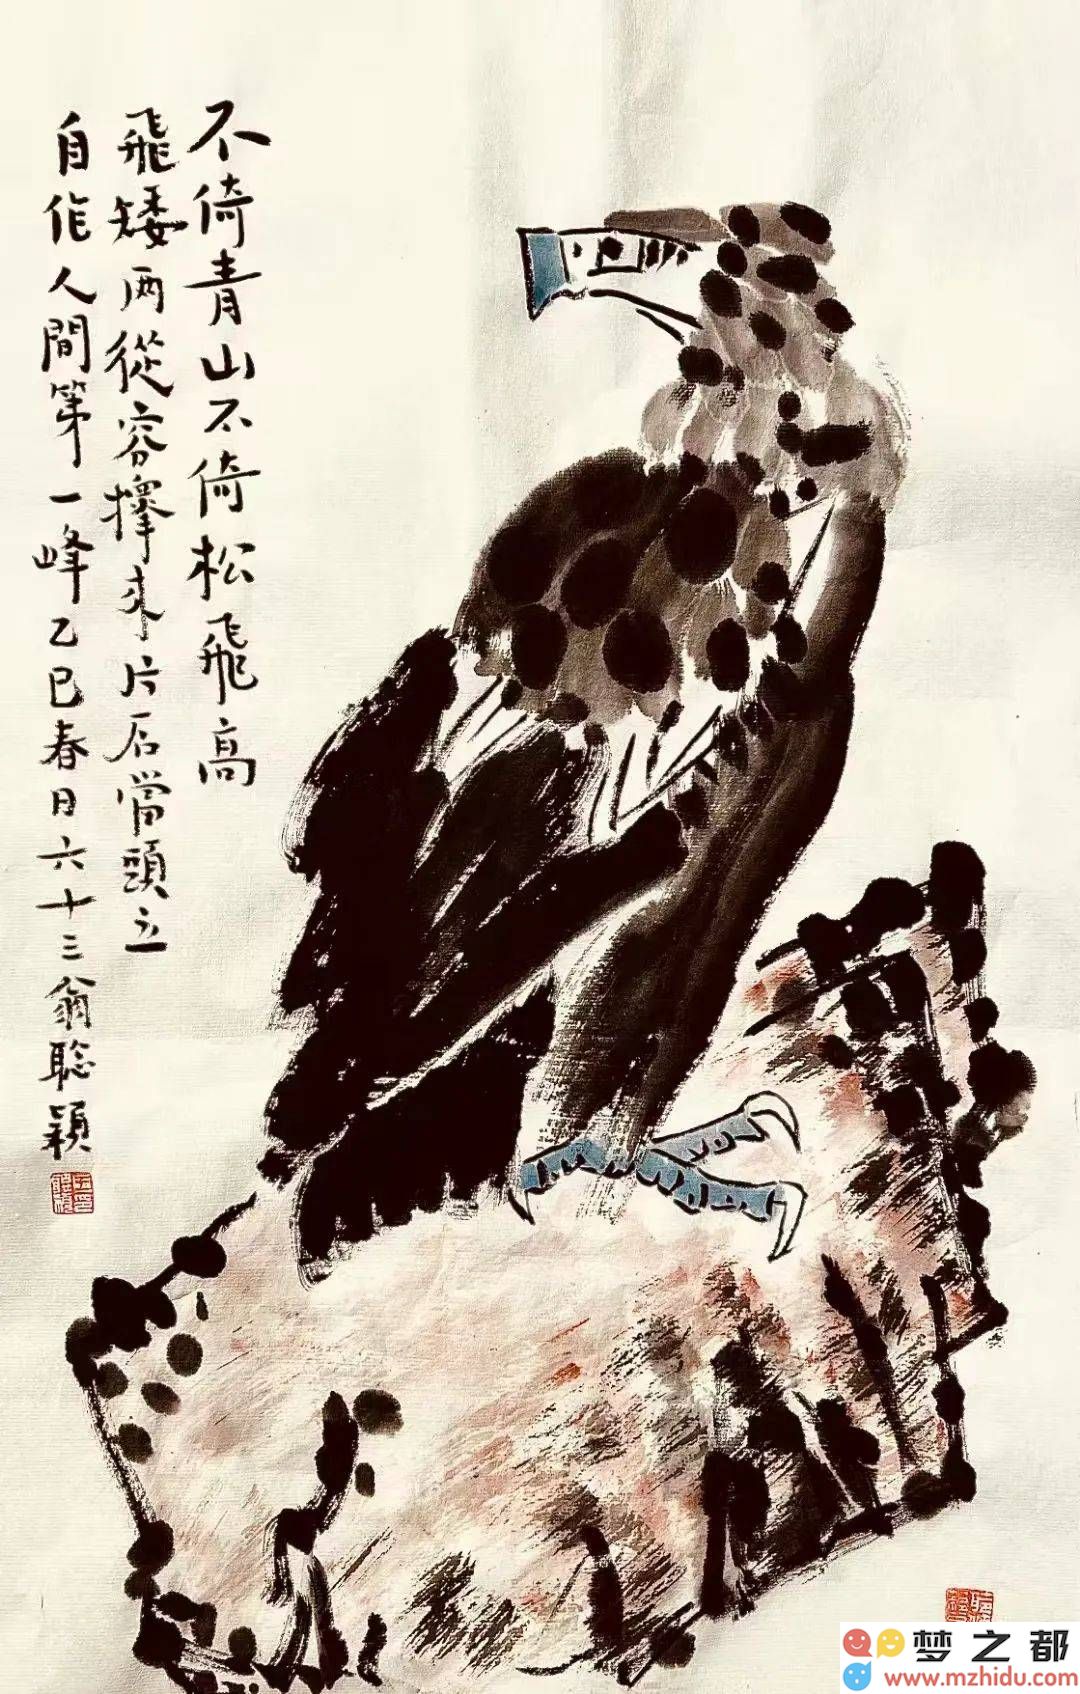 不倚青山不倚松飛高
飛矮兩從容擇來片石當頭立
自作人間第一峰乙巳春日六十三翁聰穎
梦之都
www.mzhidu.com